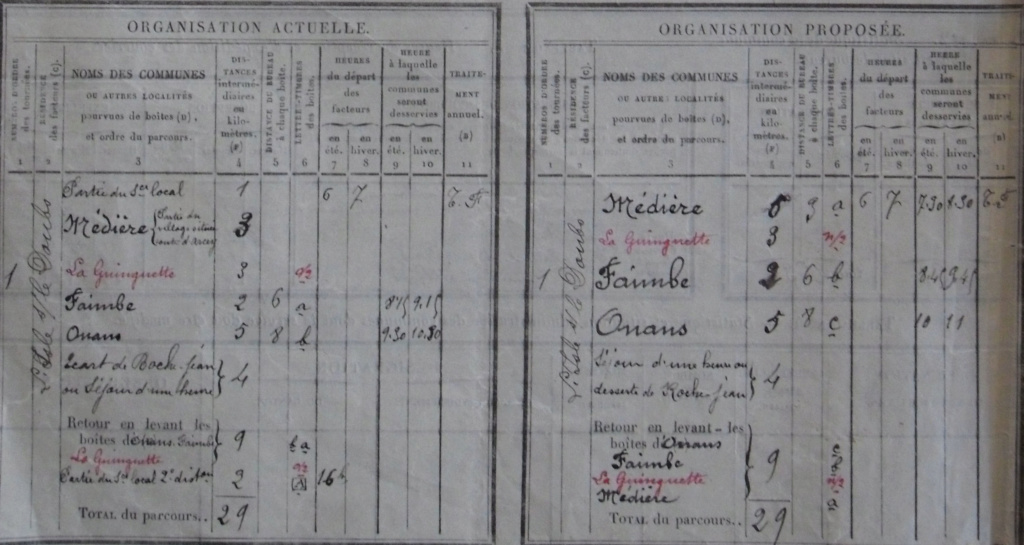 ORGANISATION ACTUELLE.
NUMÉROS D'ORDRE des tournées.
RÉSIDENCE des facteurs (c).
NOMS DES COMMUNES
OU AUTRES LOCALITÉS
pourvues de boîtes (D),
et ordre du parcours.
DISTANCES intermédiaires en kilomètres.
DISTANCE DU BUREAU à chaque boîte.
LETTRES-TIMBRES des boîtes.
HEURES du départ des facteurs
en été. en hiver.
HEURE à laquelle les communes seront desservies
en été. en hiver.
TRAITEMENT annuel.
1 2 3 4 5 6 7 8 9 10 11
Partie du Sce local 1 6 7 T.F
1 L'Isle s/le Doubs
Médière 3
La Guinguette 3
Faimbe 2 6 a 8 45 9.45
Onans 5 8 b 9.30 10.30
Ecart de Roche-Jean
ou Séjour d'une heure } 4
Retour en levant les
boîtes d'Onans. Faimbe } 9 b a
La Guinguette
Partie du Sce local 2e diston 2 16h
TOTAL du parcours.. 29
ORGANISATION PROPOSÉE.
NUMÉROS D'ORDRE des tournées.
RÉSIDENCE des facteurs (c).
NOMS DES COMMUNES
OU AUTRES LOCALITÉS
pourvues de boîtes (D),
et ordre du parcours.
DISTANCES intermédiaires en kilomètres.
DISTANCE DU BUREAU à chaque boîte.
LETTRES-TIMBRES des boîtes.
HEURES du départ des facteurs
en été. en hiver.
HEURE à laquelle les communes seront desservies
en été. en hiver.
TRAITEMENT annuel.
1 2 3 4 5 6 7 8 9 10 11
Médière 5 3 a 6 7 7.30 8.30 T.F
La Guinguette 3
1 L'Isle s/le Doubs
Faimbe 2 6 b 8.45 9.45
Onans 5 8 c 10 11
Séjour d'une heure ou
desserte de Roche-Jean } 4
Retour en levant les
boîtes d'Onans
Faimbe
La Guinguette
Médière } 9
TOTAL du parcours.. 29